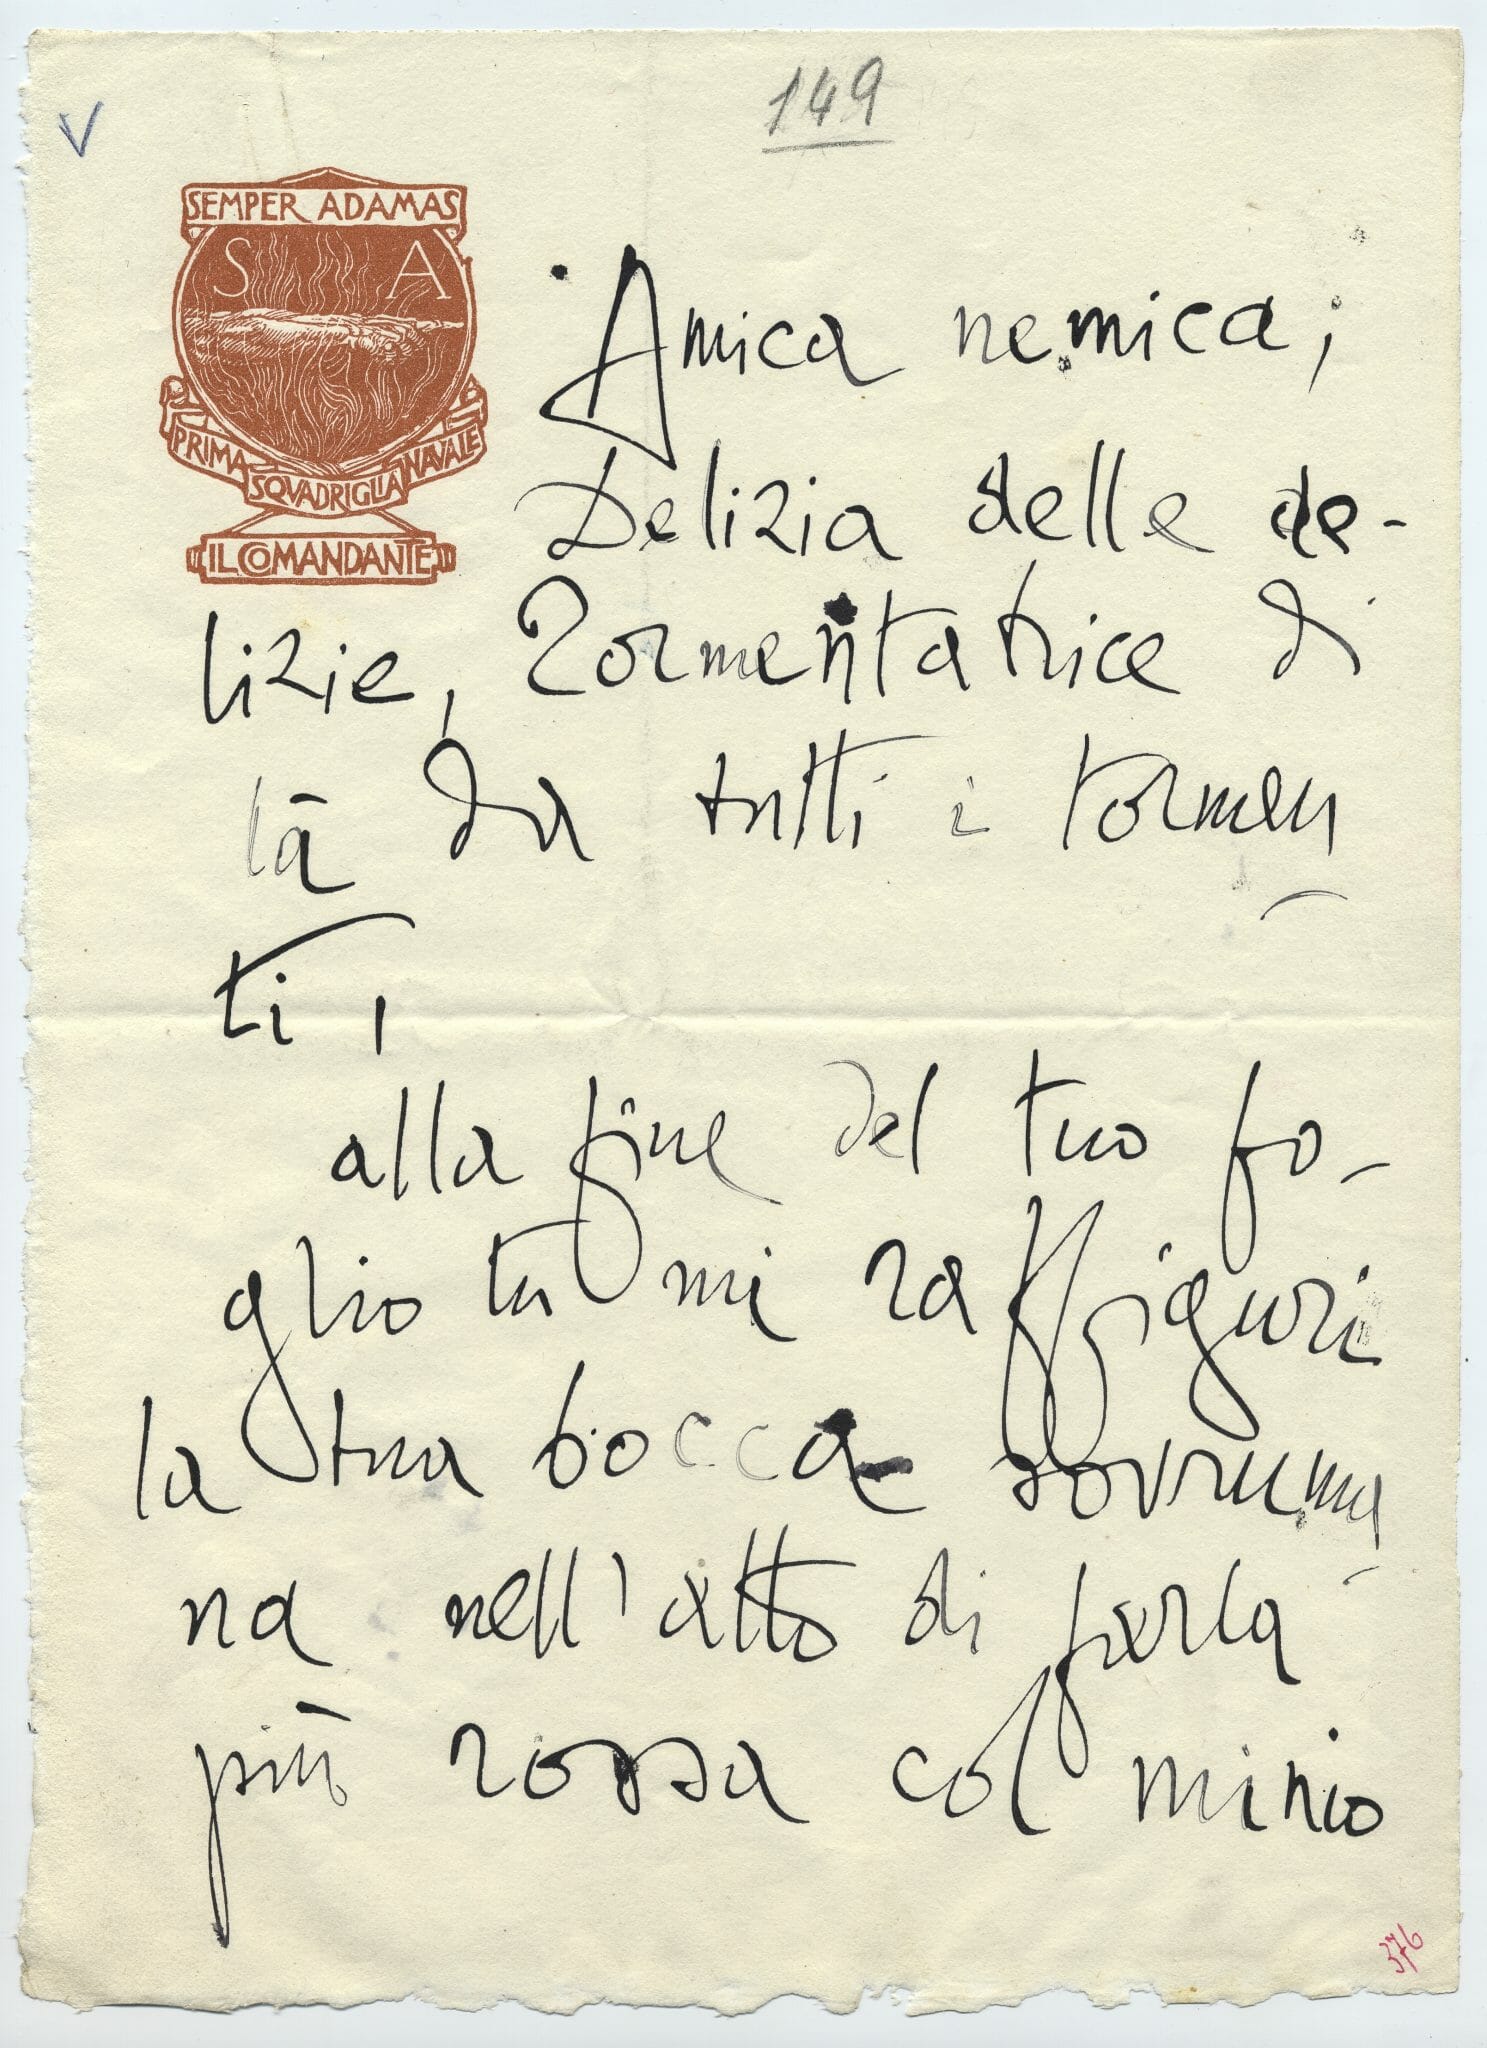 149
V
SEMPER ADAMAS
S A
PRIMA SQVADRIGLIA NAVALE
IL COMANDANTE
Amica nemica,
Delizia delle de-
lizie, Tormentatrice di
là da tutti i tormen-
ti,
alla fine del tuo fo-
glio tu mi raffiguri
la tua bocca sovruma-
na nell'atto di farla
più rossa col minio
376